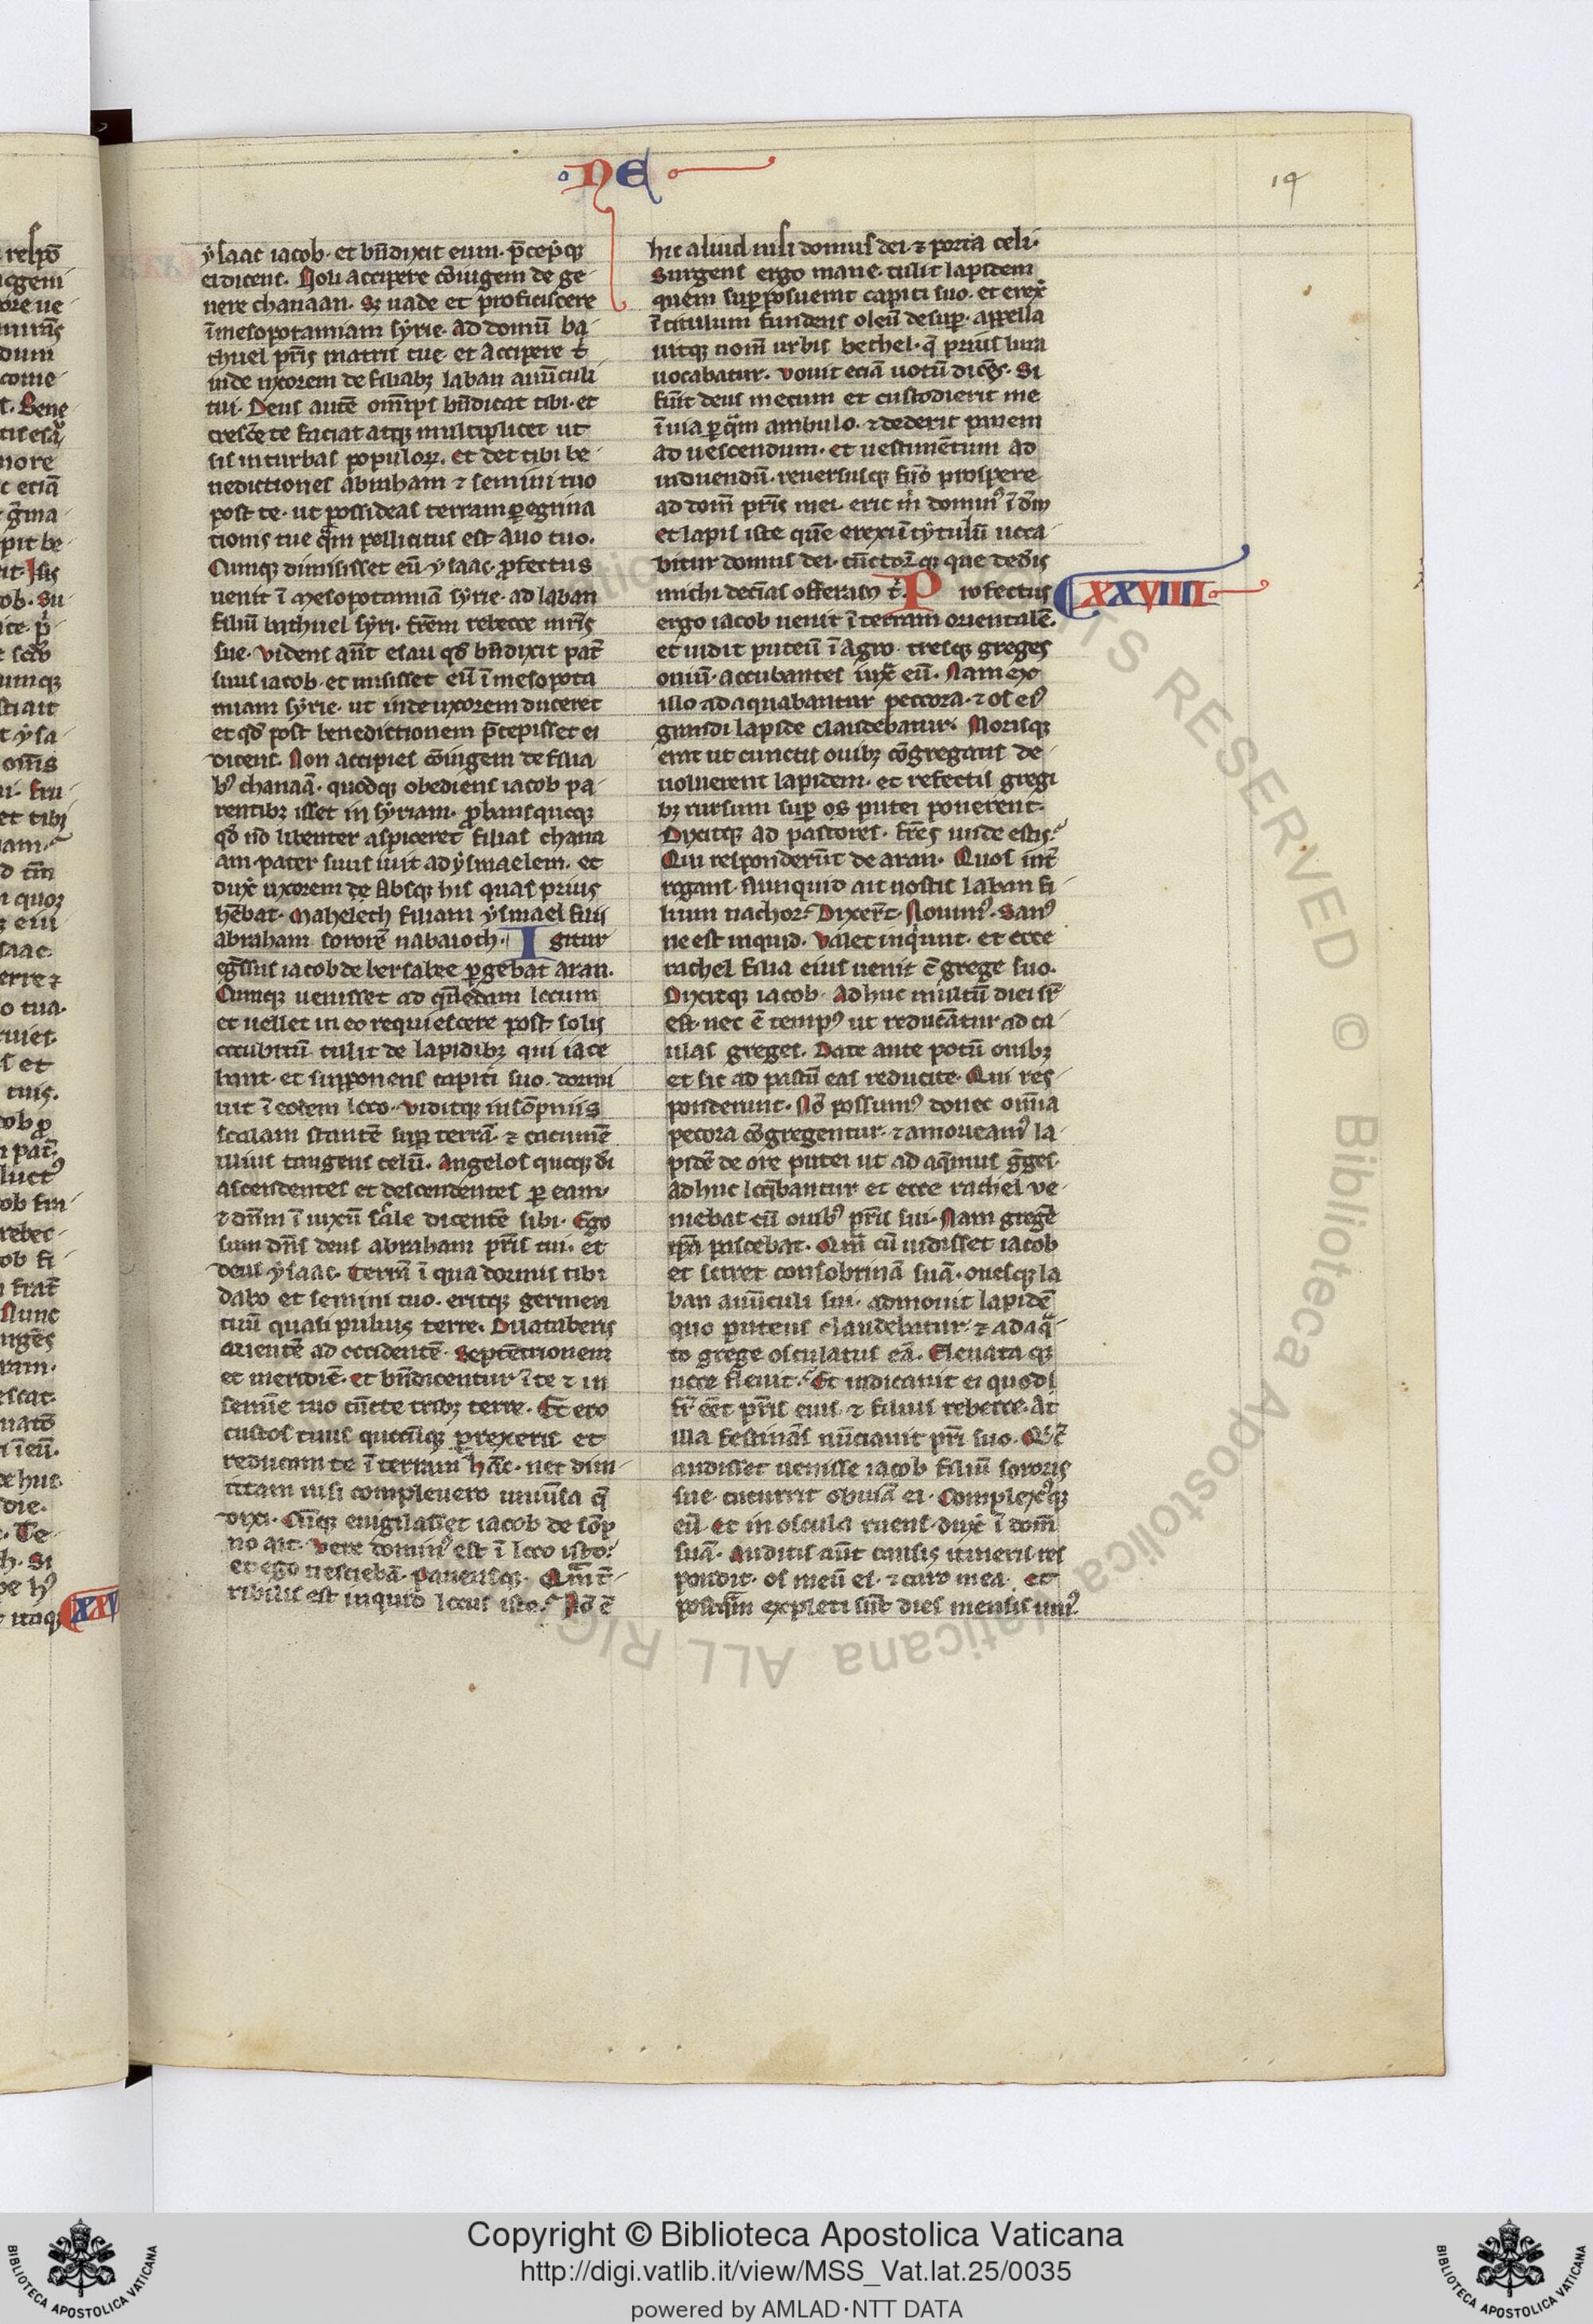 NE
19
ẏsaac iacob· et bn̄dixit eum· p̄cepitq;
ei dicens. Noli accipere ɔ̄iugem de ge-
nere chanaan. Sꝫ uade et proficiscere
ī mesopotamiam sẏrie· ad domū ba-
thuel pr̄is matris tue· et accipere t̄
inde uxorem de filiabꝫ laban auūculi
tui. Deus autē om̄ips bn̄dicat tibi· et
crescē te faciat atqꝫ multiplicet ut
sis in turbas populoꝝ. et det tibi be-
nedictiones abraham ⁊ semini tuo
post te· ut possideas terram ꝑegrina
tionis tue q̄m pollicitus est auo tuo.
Cumqꝫ dimisisset eū ẏsaac· ꝓfectus
uenit ī mesopotamiā sẏrie· ad laban
filiū bathuel sẏri· fr̄em rebecce mr̄is
sue· Videns aūt esau qd̄ bn̄dixit pat̄
suus iacob· et misisset eū ī mesopota
miam sẏrie· ut inde uxorem duceret
et qd̄ post benedictionem p̄cepisset ei
dicens. Non accipies ɔ̄iugem de filia
bꝰ chanaā· quodqꝫ obediens iacob pa-
rentibꝫ isset in sẏriam· ꝓbans quoqꝫ
qd̄ nō libenter aspiceret filias chana
am· pater suus iuit ad ẏsmaelem· et
dux̄ uxorem de absqꝫ his quas prius
hēbat· Mahelech filiam ẏsmael filii
abraham sororē nabaioth· Igitur
eg̃ssus iacob de bersabee ꝑgebat aran.
Cumqꝫ uenisset ad quēdam locum
et uellet in eo requiescere post solis
occubitū tulit de lapidibꝫ qui iace
bant· et supponens capiti suo· dormi
uit ī eodem loco· Viditqꝫ in sōpniis
scalam stantē suꝑ terrā· ⁊ cacumē
illius tangens celū. Angelos quoqꝫ di
ascendentes et descendentes ꝑ eam·
⁊ dn̄m īnixū scale dicentē sibi· Ego
sum dn̄s deus abraham pr̄is tui· et
deus ẏsaac. Terrā ī qua dormis tibi
dabo et semini tuo. eritqꝫ germen
tuū quasi puluis terre. Dilataberis
orientē ad occidentē· Septētrionem
et meridiē· et bn̄dicentur ī te ⁊ in
semine tuo cūcte tribꝫ terre. Et ero
custos tuus quocūqꝫ ꝑrexeris et
reducam te ī terram hāc· nec dim-
ittam nisi compleuero uniūsa q̄
dixi· Cūqꝫ euigilasset iacob de sōp
no ait· Vere dominꝰ est ī loco isto·
et ego nesciebā· Pauensqꝫ· Qm̄ t̄-
ribilis est inquid locus iste. Nō ē
hic aliud nisi domus dei· ⁊ porta celi·
Surgens ergo mane· tulit lapidem
quem supposuerat capiti suo· et erex̄
ī titulum fundens oleū desuꝑ· appella
uitqꝫ nom̄ urbis bethel· q̄ prius luza
uocabatur· Vouit eciā uotū dicēs. Si
fūit deus mecum et custodierit me
ī uia ꝑ q̄m ambulo· ⁊ dederit panem
ad uescendum· et uestimētum ad
induendū· reuersusqꝫ fuo prospere
ad dom̄ pr̄is mei· erit m̄ dominꝰ ī dm̄
et lapis iste quē erexi ī tẏtulū uoca-
bitur domus dei· cūctoꝝqꝫ que dedis
michi decīas offeram t̄. Profectus
XXVIIII
ergo iacob uenit ī terram orientalē.
et uidit puteū ī agro· tresqꝫ greges
ouiū· accubantes iux̄ eū. Nam ex
illo adaquabantur peccora· ⁊ os eiꝰ
grandi lapide claudebatur. Morisqꝫ
erat ut cunctis ouibꝫ ɔ̄gregatis de-
uoluerent lapidem· et refectis gregi
bꝫ rursum suꝑ os putei ponerent·
Dixitqꝫ ad pastores· fr̄es unde estis·
Qui responderūt de aran· Quos int̄
rogans· Nunquid ait nostis laban fi-
lium nachor· Dixert̄· Nouimꝰ· Sanꝰ
ne est inquid. Valet inq̄unt· et ecce
rachel filia eius uenit c̄ grege suo.
Dixitqꝫ iacob· Adhuc multū diei sr̄
est· nec ē tempꝰ ut reducātur ad ca-
ulas greges. Date ante potū ouibꝫ
et sic ad pastū eas reducite· Qui res-
ponderunt· Nō possumꝰ donec om̄ia
pecora ɔ̄gregentur· ⁊ amoueamꝰ la-
pidē de ore putei ut ad aq̄mus g̃ges·
Adhuc loq̄bantur et ecce rachel ve-
niebat cū ouibꝰ pr̄is sui· Nam gregē
ip̄a pascebat· Qm̄ cū uidisset iacob
et sciret consobrinā suā· ouesqꝫ la
ban auūculi sui· admouit lapidē
quo puteus claudebatur· ⁊ adaq̄-
to grege osculatus eā. Eleuataqꝫ
uoce fleuit· Et indicauit ei quod
fr̄ eēt pr̄is eius ⁊ filius rebecce· At
illa festināt nūciauit pr̄i suo·
audisset uenisse iacob filiū sororis
sue· cucurrit obuiā ei· Complexꝰqꝫ
eū et in oscula ruens· dux̄ ī dom̄
suā· Auditis aūt causis itineris res
pondit· os meū es· ⁊ caro mea· et
postq̄m expleti sūt dies mensis uniꝰ.
Copyright © Biblioteca Apostolica Vaticana
http://digi.vatlib.it/view/MSS_Vat.lat.25/0035
powered by AMLAD·NTT DATA